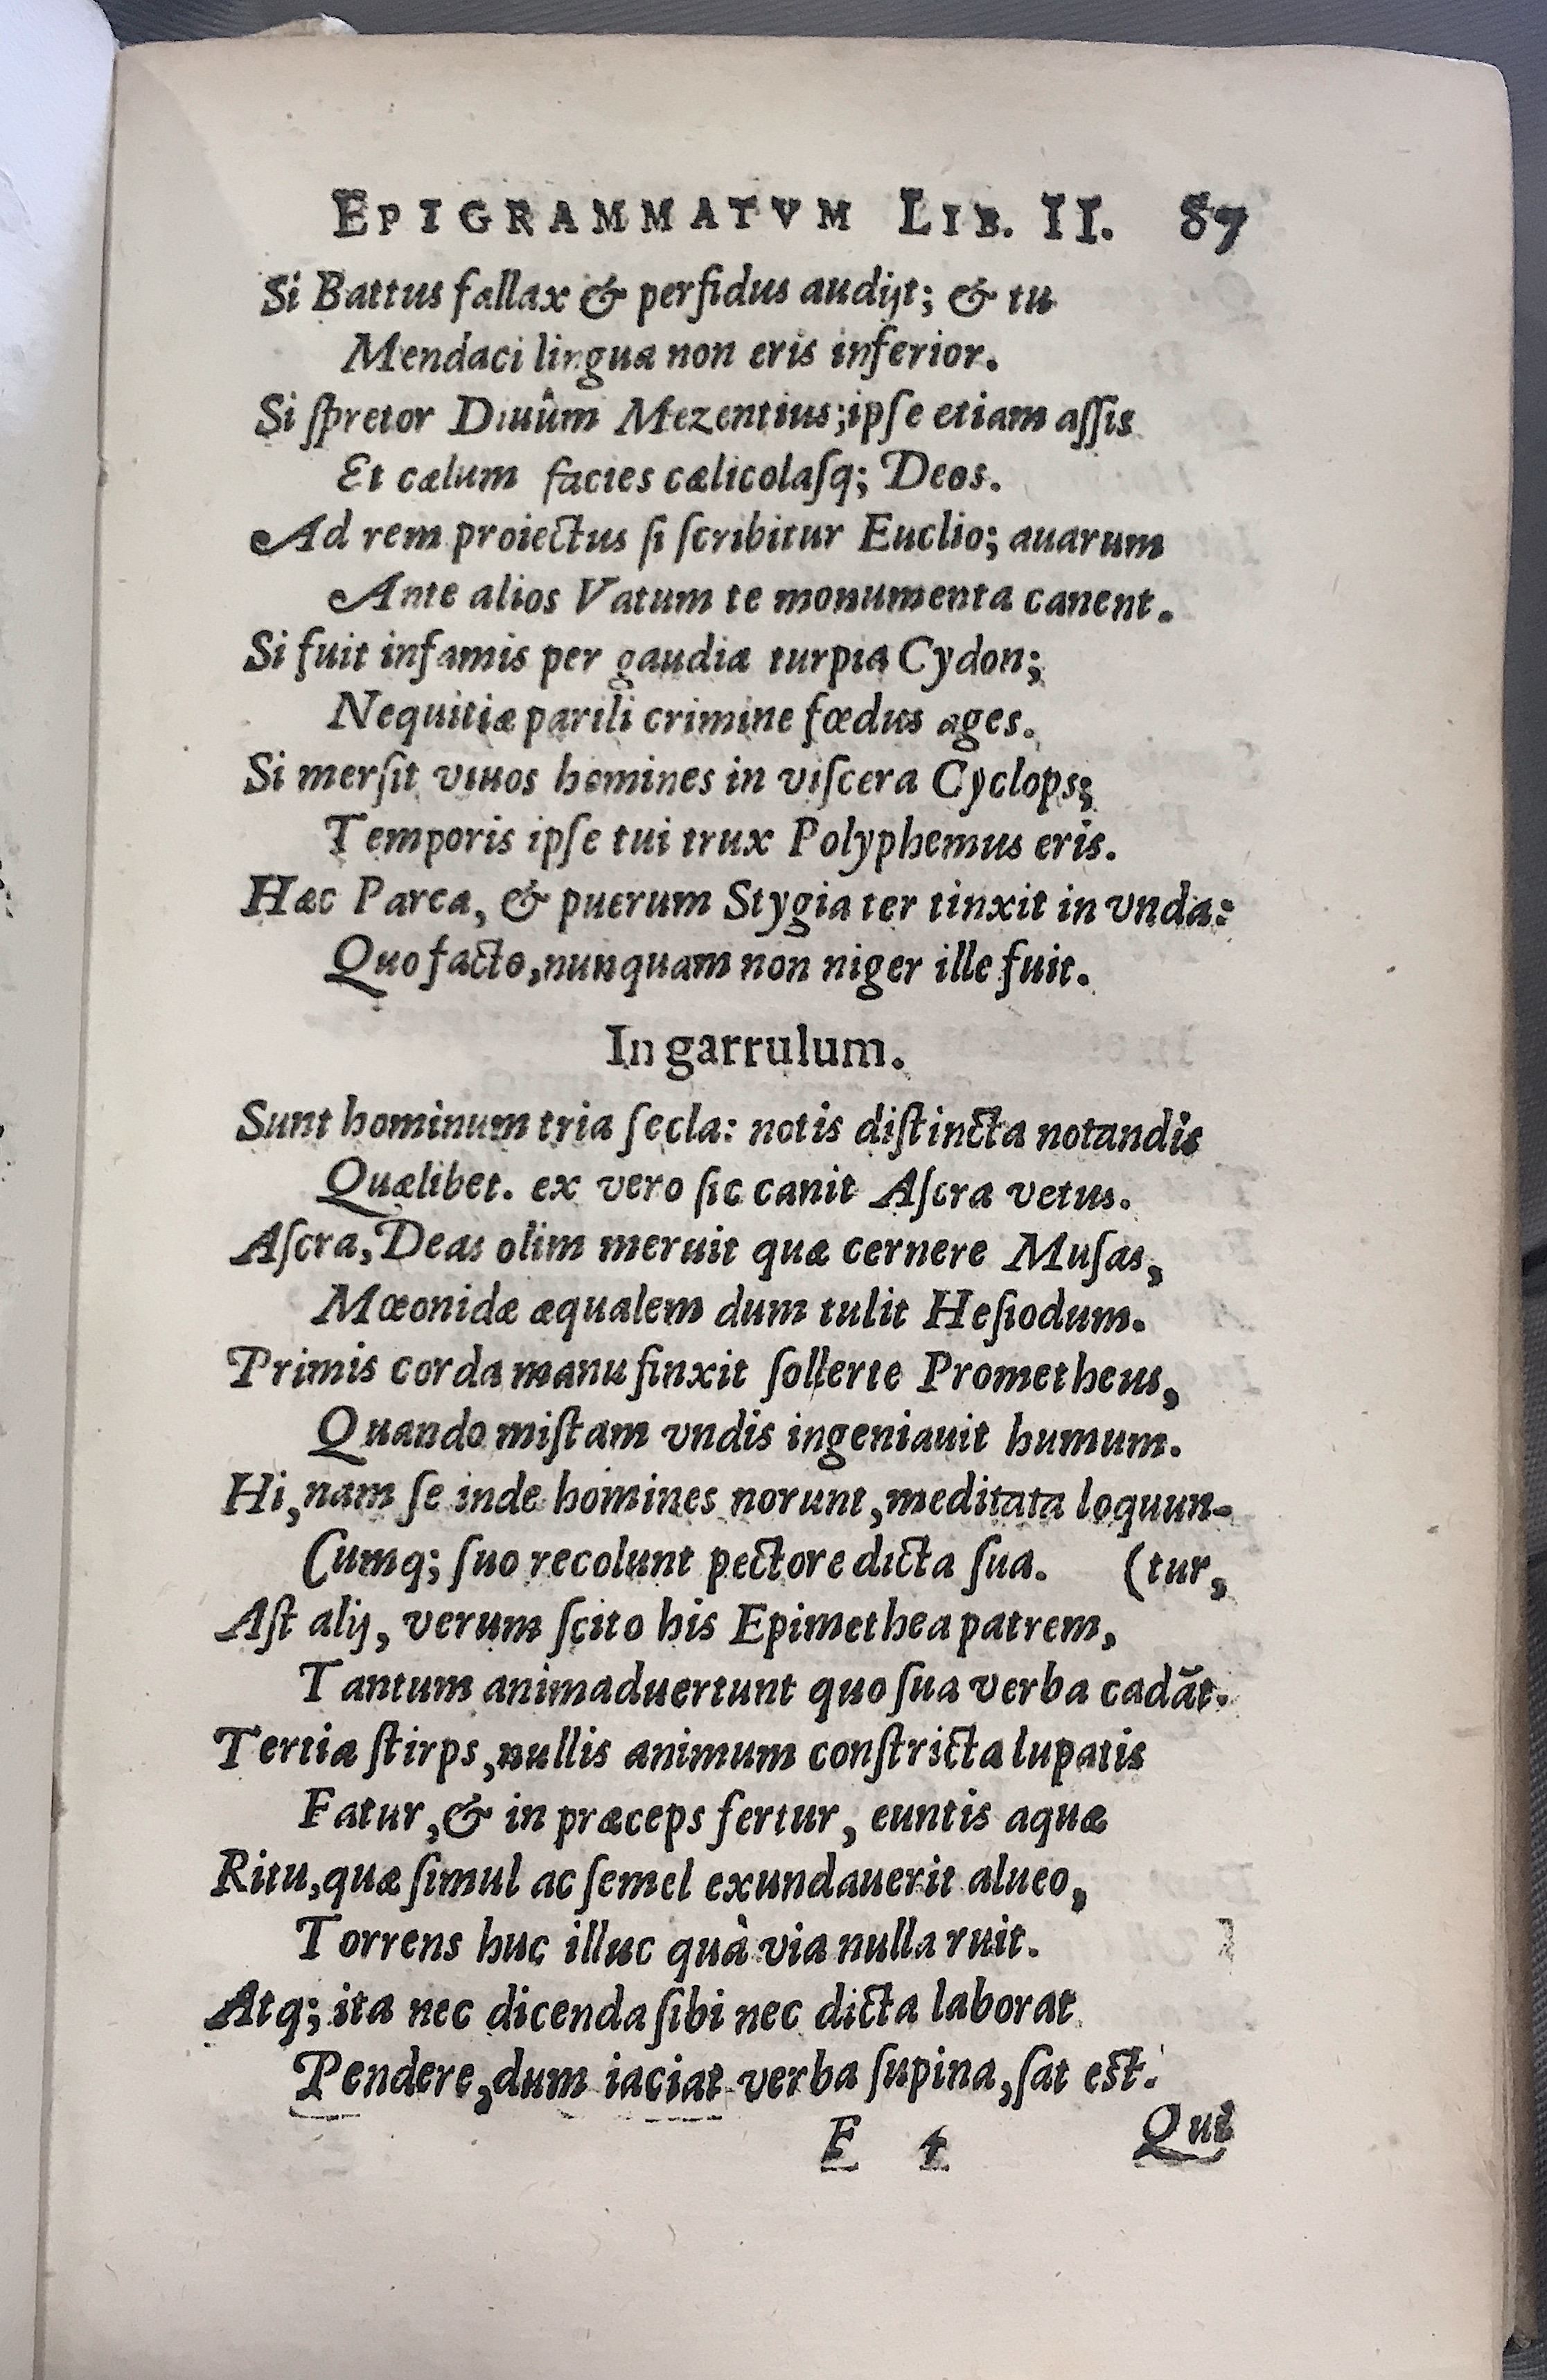 EPIGRAMMATVM LIB. II. 87
Si Battus fallax & perfidus audijt; & tu
Mendaci lingua non eris inferior.
Si ſpretor Diuûm Mezentius; ipſe etiam aſſis
Et cælum facies cælicolaſq; Deos.
Ad rem proiectus ſi ſcribitur Euclio; auarum
Ante alios Vatum te monumenta canent.
Si fuit infamis per gaudia turpia Cydon;
Nequitiæ parili crimine fœdus ages.
Si merſit viuos homines in viſcera Cyclops;
Temporis ipſe tui trux Polyphemus eris.
Hæc Parca, & puerum Stygia ter tinxit in vnda:
Quo facto, nunquam non niger ille fuit.
In garrulum.
Sunt hominum tria ſecla: notis diſtincta notandis
Quælibet. ex vero ſic canit Aſcra vetus.
Aſcra, Deas olim meruit quæ cernere Muſas,
Mœonidæ æqualem dum tulit Heſiodum.
Primis corda manu finxit ſollerte Prometheus,
Quando miſtam vndis ingeniauit humum.
Hi, nam ſe inde homines norunt, meditata loquun-
Cumq; ſuo recolunt pectore dicta ſua. (tur,
Aſt alij, verum ſcito his Epimethea patrem,
Tantum animaduertunt quo ſua verba cadãt.
Tertia ſtirps, nullis animum conſtricta lupatis
Fatur, & in præceps fertur, euntis aquæ
Ritu, quæ ſimul ac ſemel exundauerit alueo,
Torrens huc illuc quà via nulla ruit.
Atq; ita nec dicenda ſibi nec dicta laborat
Pendere, dum iaciat verba ſupina, ſat eſt.
F 4 Qui